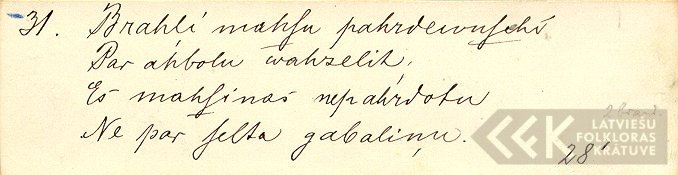 31. Brahli mahsu pahrdewuschi
Par ahbolu wahzelit.
Es mahsinas nepahrdotu
Ne par selta gabaliņu.
28¹
LATVIEŠU
FOLKLORAS
KRĀTUVE